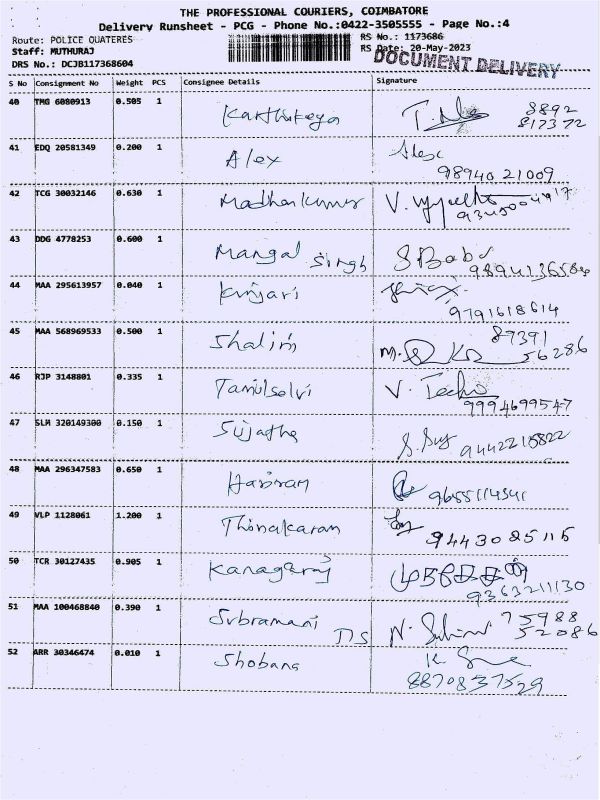 THE PROFESSIONAL COURIERS, COIMBATORE
Delivery Runsheet - PCG - Phone No.:0422-3505555 - Page No.:4
Route: POLICE QUATERES RS No.: 1173686
Staff: MUTHURAJ RS Date: 20-May-2023
DRS No.: DCJB117368604 DOCUMENT DELIVERY
S No Consignment No Weight PCS Consignee Details Signature
40 TMG 6080913 0.505 1 Karthikeya 8892
817372
41 EDQ 20581349 0.200 1 Alex Alex
98940 21009
42 TCG 30032146 0.630 1 Madhankumar V.
43 DDG 4778253 0.600 1 Mangal Singh S Babu
9894136584
44 MAA 295613957 0.040 1 Kinjari
9791618614
45 MAA 568969533 0.500 1 Shalini 87391
56286
46 RJP 3148801 0.335 1 Tamilselvi V.
9994699547
47 SLM 320149300 0.150 1 Sujatha 9442215822
48 MAA 296347583 0.650 1 Hariram 9655114541
49 VLP 1128061 1.200 1 Thinakaran 9443085115
50 TCR 30127435 0.905 1 Kanagaraj
9363211130
51 MAA 100468840 0.390 1 Subramani DS N. 75988
52086
52 ARR 30346474 0.010 1 Shobana K
8870837529